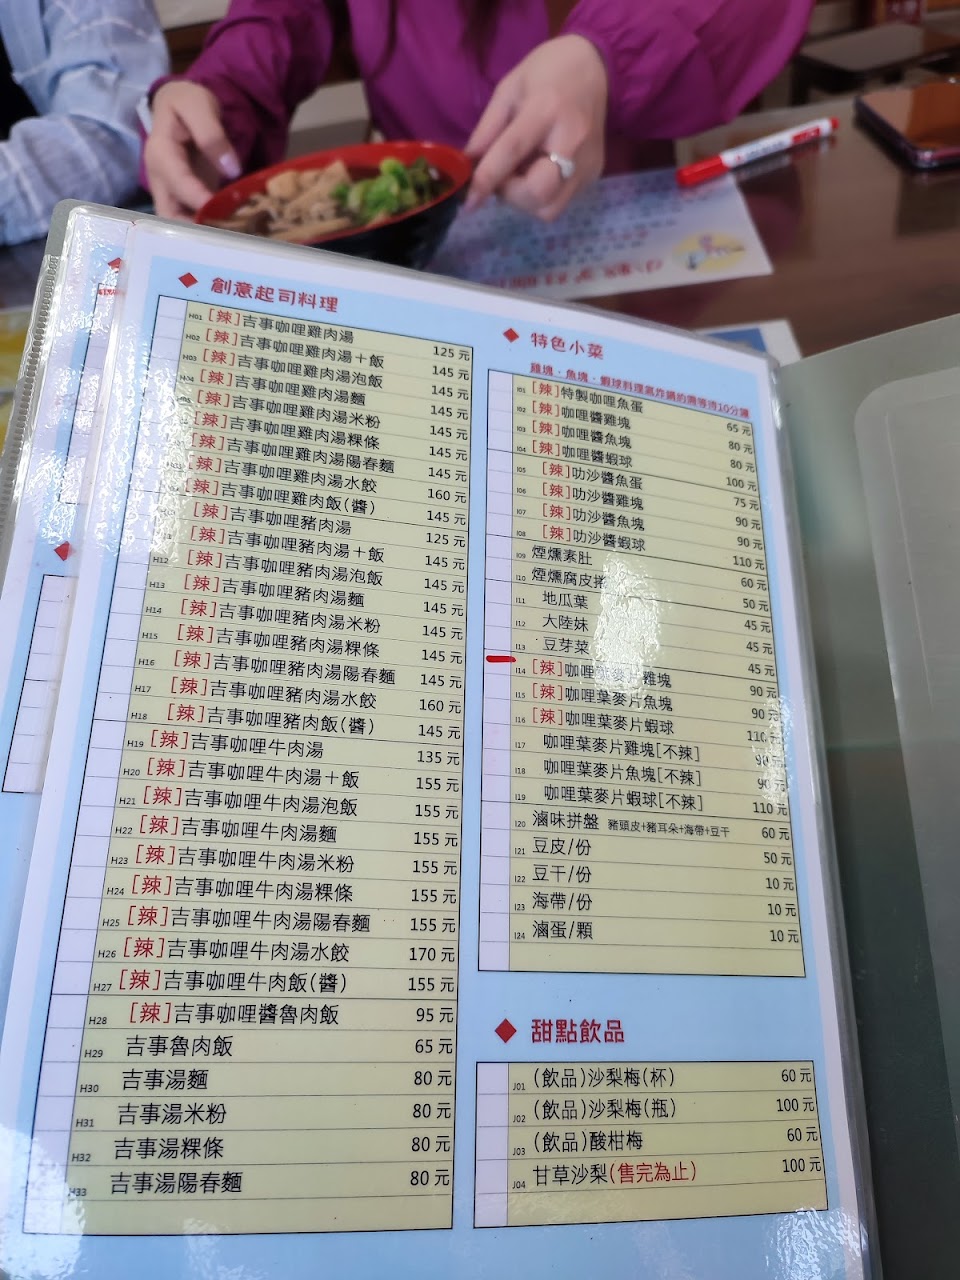 創意起司料理
H01 [辣]吉事咖哩雞肉湯 125 元
H02 [辣]吉事咖哩雞肉湯＋飯 145 元
H03 [辣]吉事咖哩雞肉湯泡飯 145 元
H04 [辣]吉事咖哩雞肉湯麵 145 元
[辣]吉事咖哩雞肉湯米粉 145 元
[辣]吉事咖哩雞肉湯粿條 145 元
[辣]吉事咖哩雞肉湯陽春麵 145 元
[辣]吉事咖哩雞肉湯水餃 160 元
[辣]吉事咖哩雞肉飯(醬) 145 元
[辣]吉事咖哩豬肉湯 125 元
[辣]吉事咖哩豬肉湯＋飯 145 元
H12 [辣]吉事咖哩豬肉湯泡飯 145 元
H13 [辣]吉事咖哩豬肉湯麵 145 元
H14 [辣]吉事咖哩豬肉湯米粉 145 元
H15 [辣]吉事咖哩豬肉湯粿條 145 元
H16 [辣]吉事咖哩豬肉湯陽春麵 145 元
H17 [辣]吉事咖哩豬肉湯水餃 160 元
H18 [辣]吉事咖哩豬肉飯(醬) 145 元
H19 [辣]吉事咖哩牛肉湯 135 元
H20 [辣]吉事咖哩牛肉湯＋飯 155 元
H21 [辣]吉事咖哩牛肉湯泡飯 155 元
H22 [辣]吉事咖哩牛肉湯麵 155 元
H23 [辣]吉事咖哩牛肉湯米粉 155 元
H24 [辣]吉事咖哩牛肉湯粿條 155 元
H25 [辣]吉事咖哩牛肉湯陽春麵 155 元
H26 [辣]吉事咖哩牛肉湯水餃 170 元
H27 [辣]吉事咖哩牛肉飯(醬) 155 元
H28 [辣]吉事咖哩醬魯肉飯 95 元
H29 吉事魯肉飯 65 元
H30 吉事湯麵 80 元
H31 吉事湯米粉 80 元
H32 吉事湯粿條 80 元
H33 吉事湯陽春麵 80 元
特色小菜
雞塊、魚塊、蝦球料理氣炸鍋約需等待10分鐘
I01 [辣]特製咖哩魚蛋 65 元
I02 [辣]咖哩醬雞塊 80 元
I03 [辣]咖哩醬魚塊 80 元
I04 [辣]咖哩醬蝦球 100 元
I05 [辣]叻沙醬魚蛋 75 元
I06 [辣]叻沙醬雞塊 90 元
I07 [辣]叻沙醬魚塊 90 元
I08 [辣]叻沙醬蝦球 110 元
I09 煙燻素肚 60 元
I10 煙燻腐皮捲 50 元
I11 地瓜葉 45 元
I12 大陸妹 45 元
I13 豆芽菜 45 元
I14 [辣]咖哩葉麥片雞塊 90 元
I15 [辣]咖哩葉麥片魚塊 90 元
I16 [辣]咖哩葉麥片蝦球 110 元
I17 咖哩葉麥片雞塊[不辣] 90 元
I18 咖哩葉麥片魚塊[不辣] 90 元
I19 咖哩葉麥片蝦球[不辣] 110 元
I20 滷味拼盤 豬頭皮+豬耳朵+海帶+豆干 60 元
I21 豆皮/份 50 元
I22 豆干/份 10 元
I23 海帶/份 10 元
I24 滷蛋/顆 10 元
甜點飲品
J01 (飲品)沙梨梅(杯) 60 元
J02 (飲品)沙梨梅(瓶) 100 元
J03 (飲品)酸柑梅 60 元
J04 甘草沙梨(售完為止) 100 元